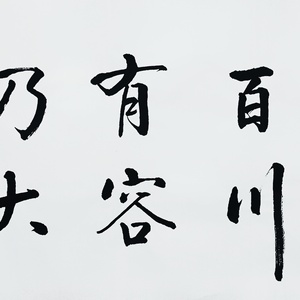 百川
有容
乃大